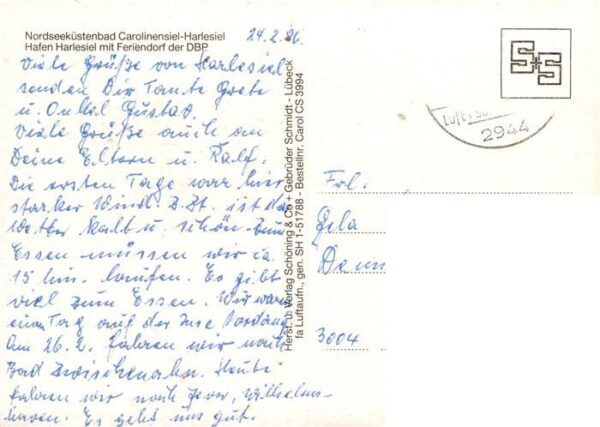 Nordseeküstenbad Carolinensiel-Harlesiel
Hafen Harlesiel mit Feriendorf der DBP
24.2.86.
Viele Grüße von Harlesiel
senden Dir Tante Grete
u. Onkel Gustav.
Viele Grüße auch an
Deine Eltern u. Ralf.
Die ersten Tage war hier
starker Wind z.Zt. ist das
Wetter kalt u. schön. Zum
Essen müssen wir ca.
15 Min. laufen. Es gibt
viel zum Essen. Wir waren
einen Tag auf der Insel
Am 26.2. fahren wir nach
Bad Zwischenahn. Heute
fahren wir nach Jever, Wilhelms-
haven. Es geht uns gut.
Herst. u. Verlag Schöning & Co + Gebrüder Schmidt - Lübeck
fa Luftaufn., gen. SH 1-51788 - Bestellnr. Carol CS 3994
S+S
2944
Frl.
Gela
3004